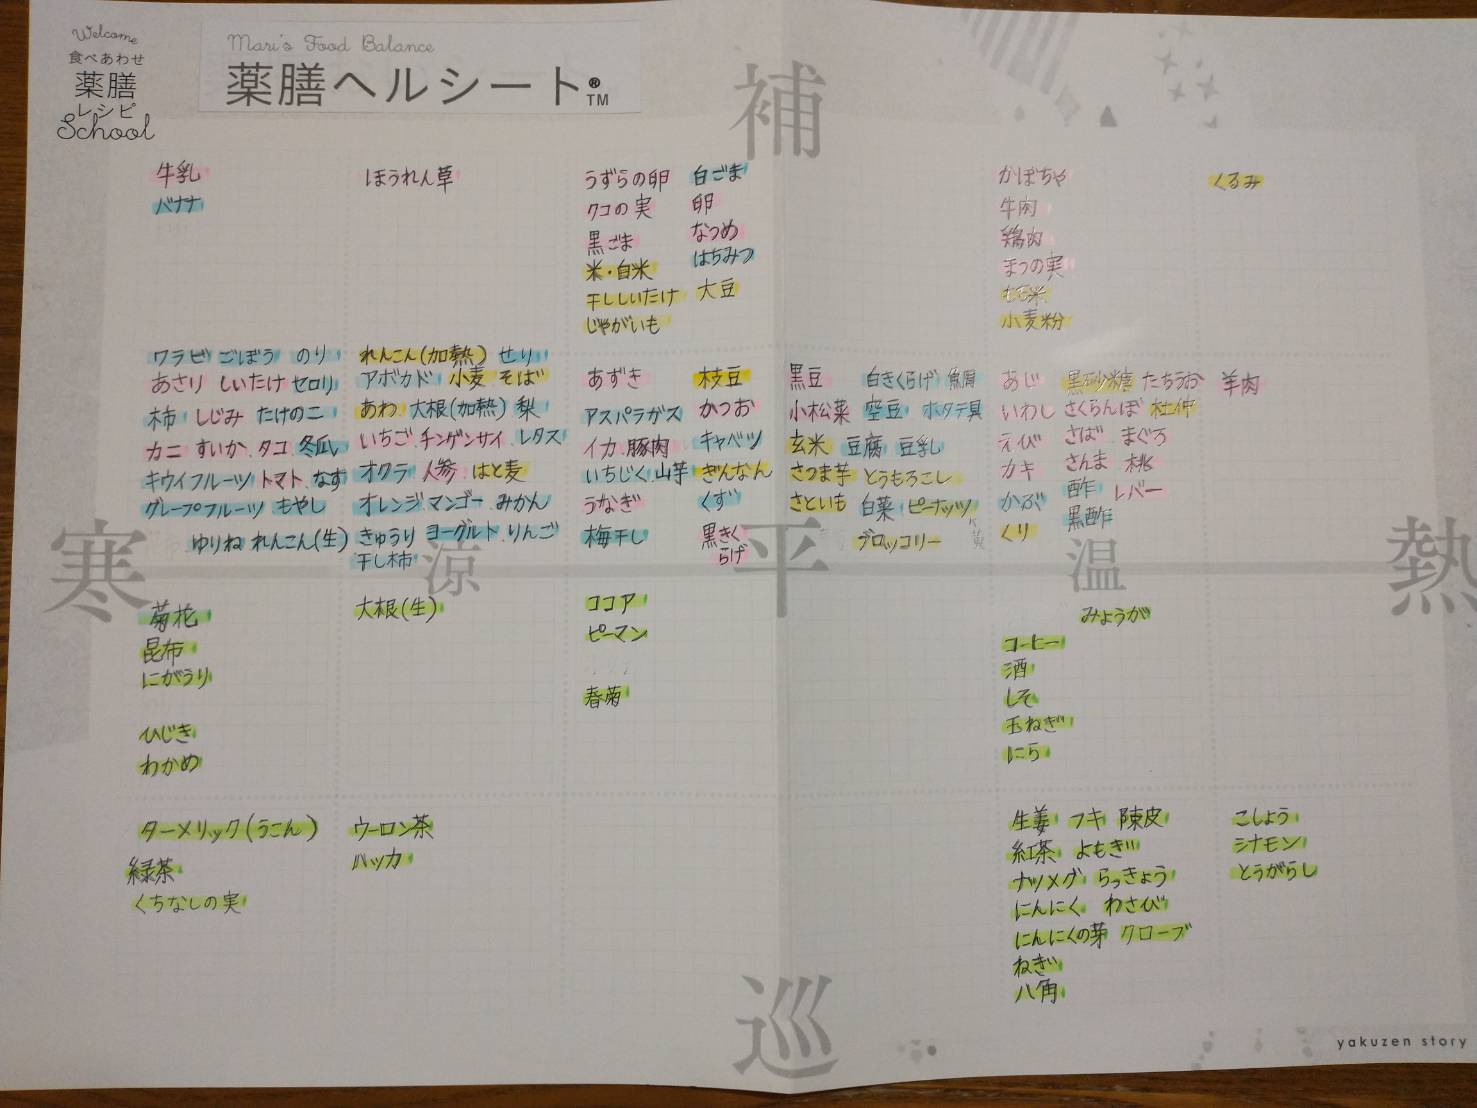 Welcome
食べあわせ
薬膳
レシピ
School
Mari's Food Balance
薬膳ヘルシート®TM
補
牛乳
バナナ
ほうれん草
うずらの卵 白ごま
クコの実 卵
黒ごま なつめ
米・白米 はちみつ
干ししいたけ 大豆
じゃがいも
かぼちゃ
牛肉
鶏肉
まつの実
もち米
小麦粉
くるみ
ワラビ ごぼう のり
あさり しいたけ セロリ
柿 しじみ たけのこ
カニ すいか タコ 冬瓜
キウイフルーツ トマト なす
グレープフルーツ もやし
ゆりね れんこん(生)
れんこん(加熱) せり
アボカド 小麦 そば
あわ 大根(加熱) 梨
いちご チンゲンサイ レタス
オクラ 人参 はと麦
オレンジ マンゴー みかん
きゅうり ヨーグルト りんご
干し柿
あずき 枝豆
アスパラガス かつお
イカ 豚肉 キャベツ
いちじく 山芋 ぎんなん
うなぎ くず
梅干し 黒きく
らげ
黒豆 白きくらげ
小松菜 空豆 ホタテ貝
玄米 豆腐 豆乳
さつま芋 とうもろこし
さといも 白菜 ピーナッツ
ブロッコリー
あじ 黒砂糖 たちうお
いわし さくらんぼ 杜仲
えび さば まぐろ
カキ さんま 桃
かぶ 酢 レバー
くり 黒酢
羊肉
寒 涼 平 温 熱
菊花
昆布
にがうり
ひじき
わかめ
大根(生)
ココア
ピーマン
春菊
みょうが
コーヒー
酒
しそ
玉ねぎ
にら
ターメリック(うこん)
緑茶
くちなしの実
ウーロン茶
ハッカ
生姜 フキ 陳皮
紅茶 よもぎ
ナツメグ らっきょう
にんにく わさび
にんにくの芽 クローブ
ねぎ
八角
こしょう
シナモン
とうがらし
巡
yakuzen story